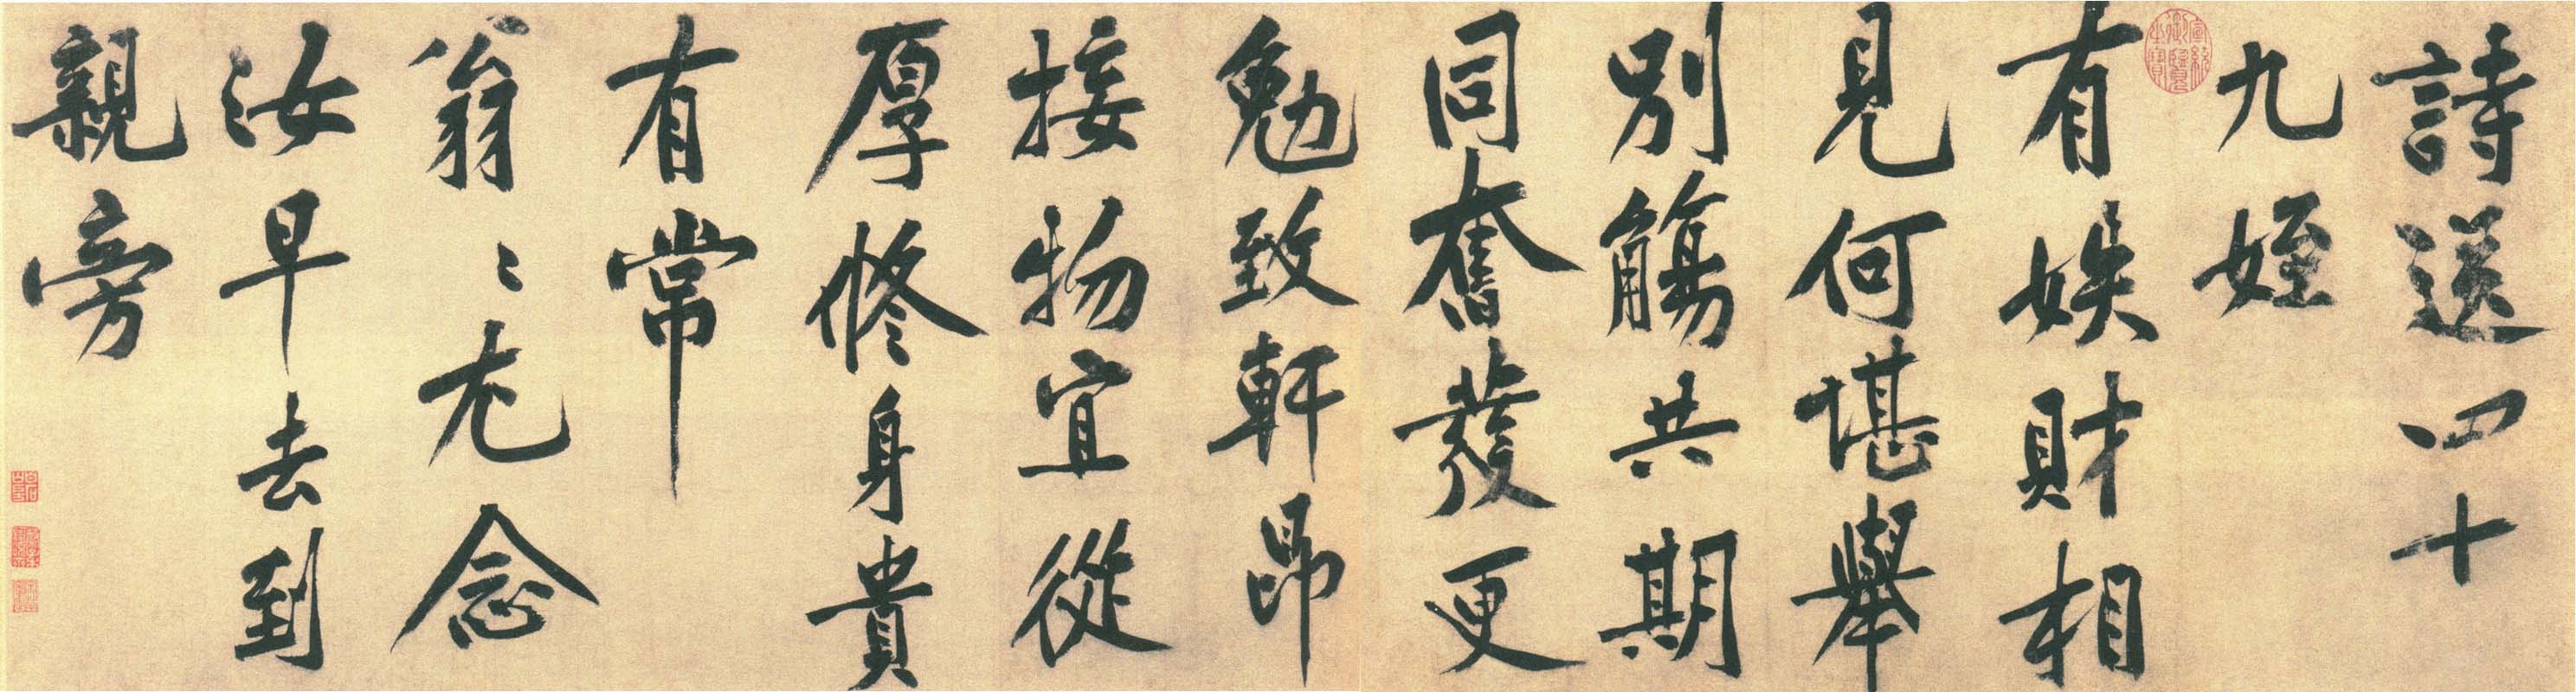 詩送四十
九姪
宣統御覽之寶
有娛財相
見何堪舉
別觴共期
同奮發更
勉致軒昂
接物宜從
厚修身貴
有常
翁〻尤念
汝早去到
親旁